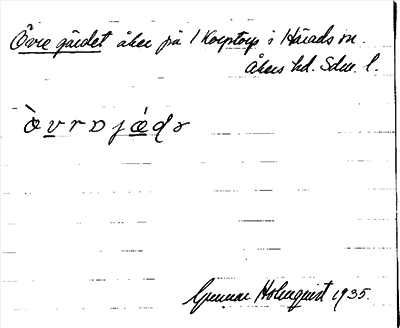 Övre gärdet åker på 1 Korptorp i Härads sn.
Åkers hd. Sdm. l.
Gunnar Holmquist 1935.